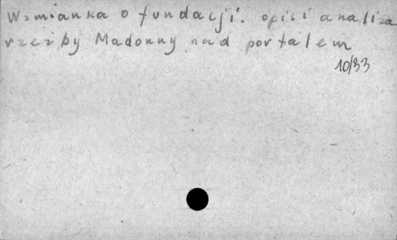 Wzmianka o fundacji. opis i analiza
rzeźby Madonny nad portalem
10/33